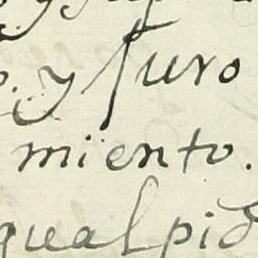 y suro
miento.
qual pid